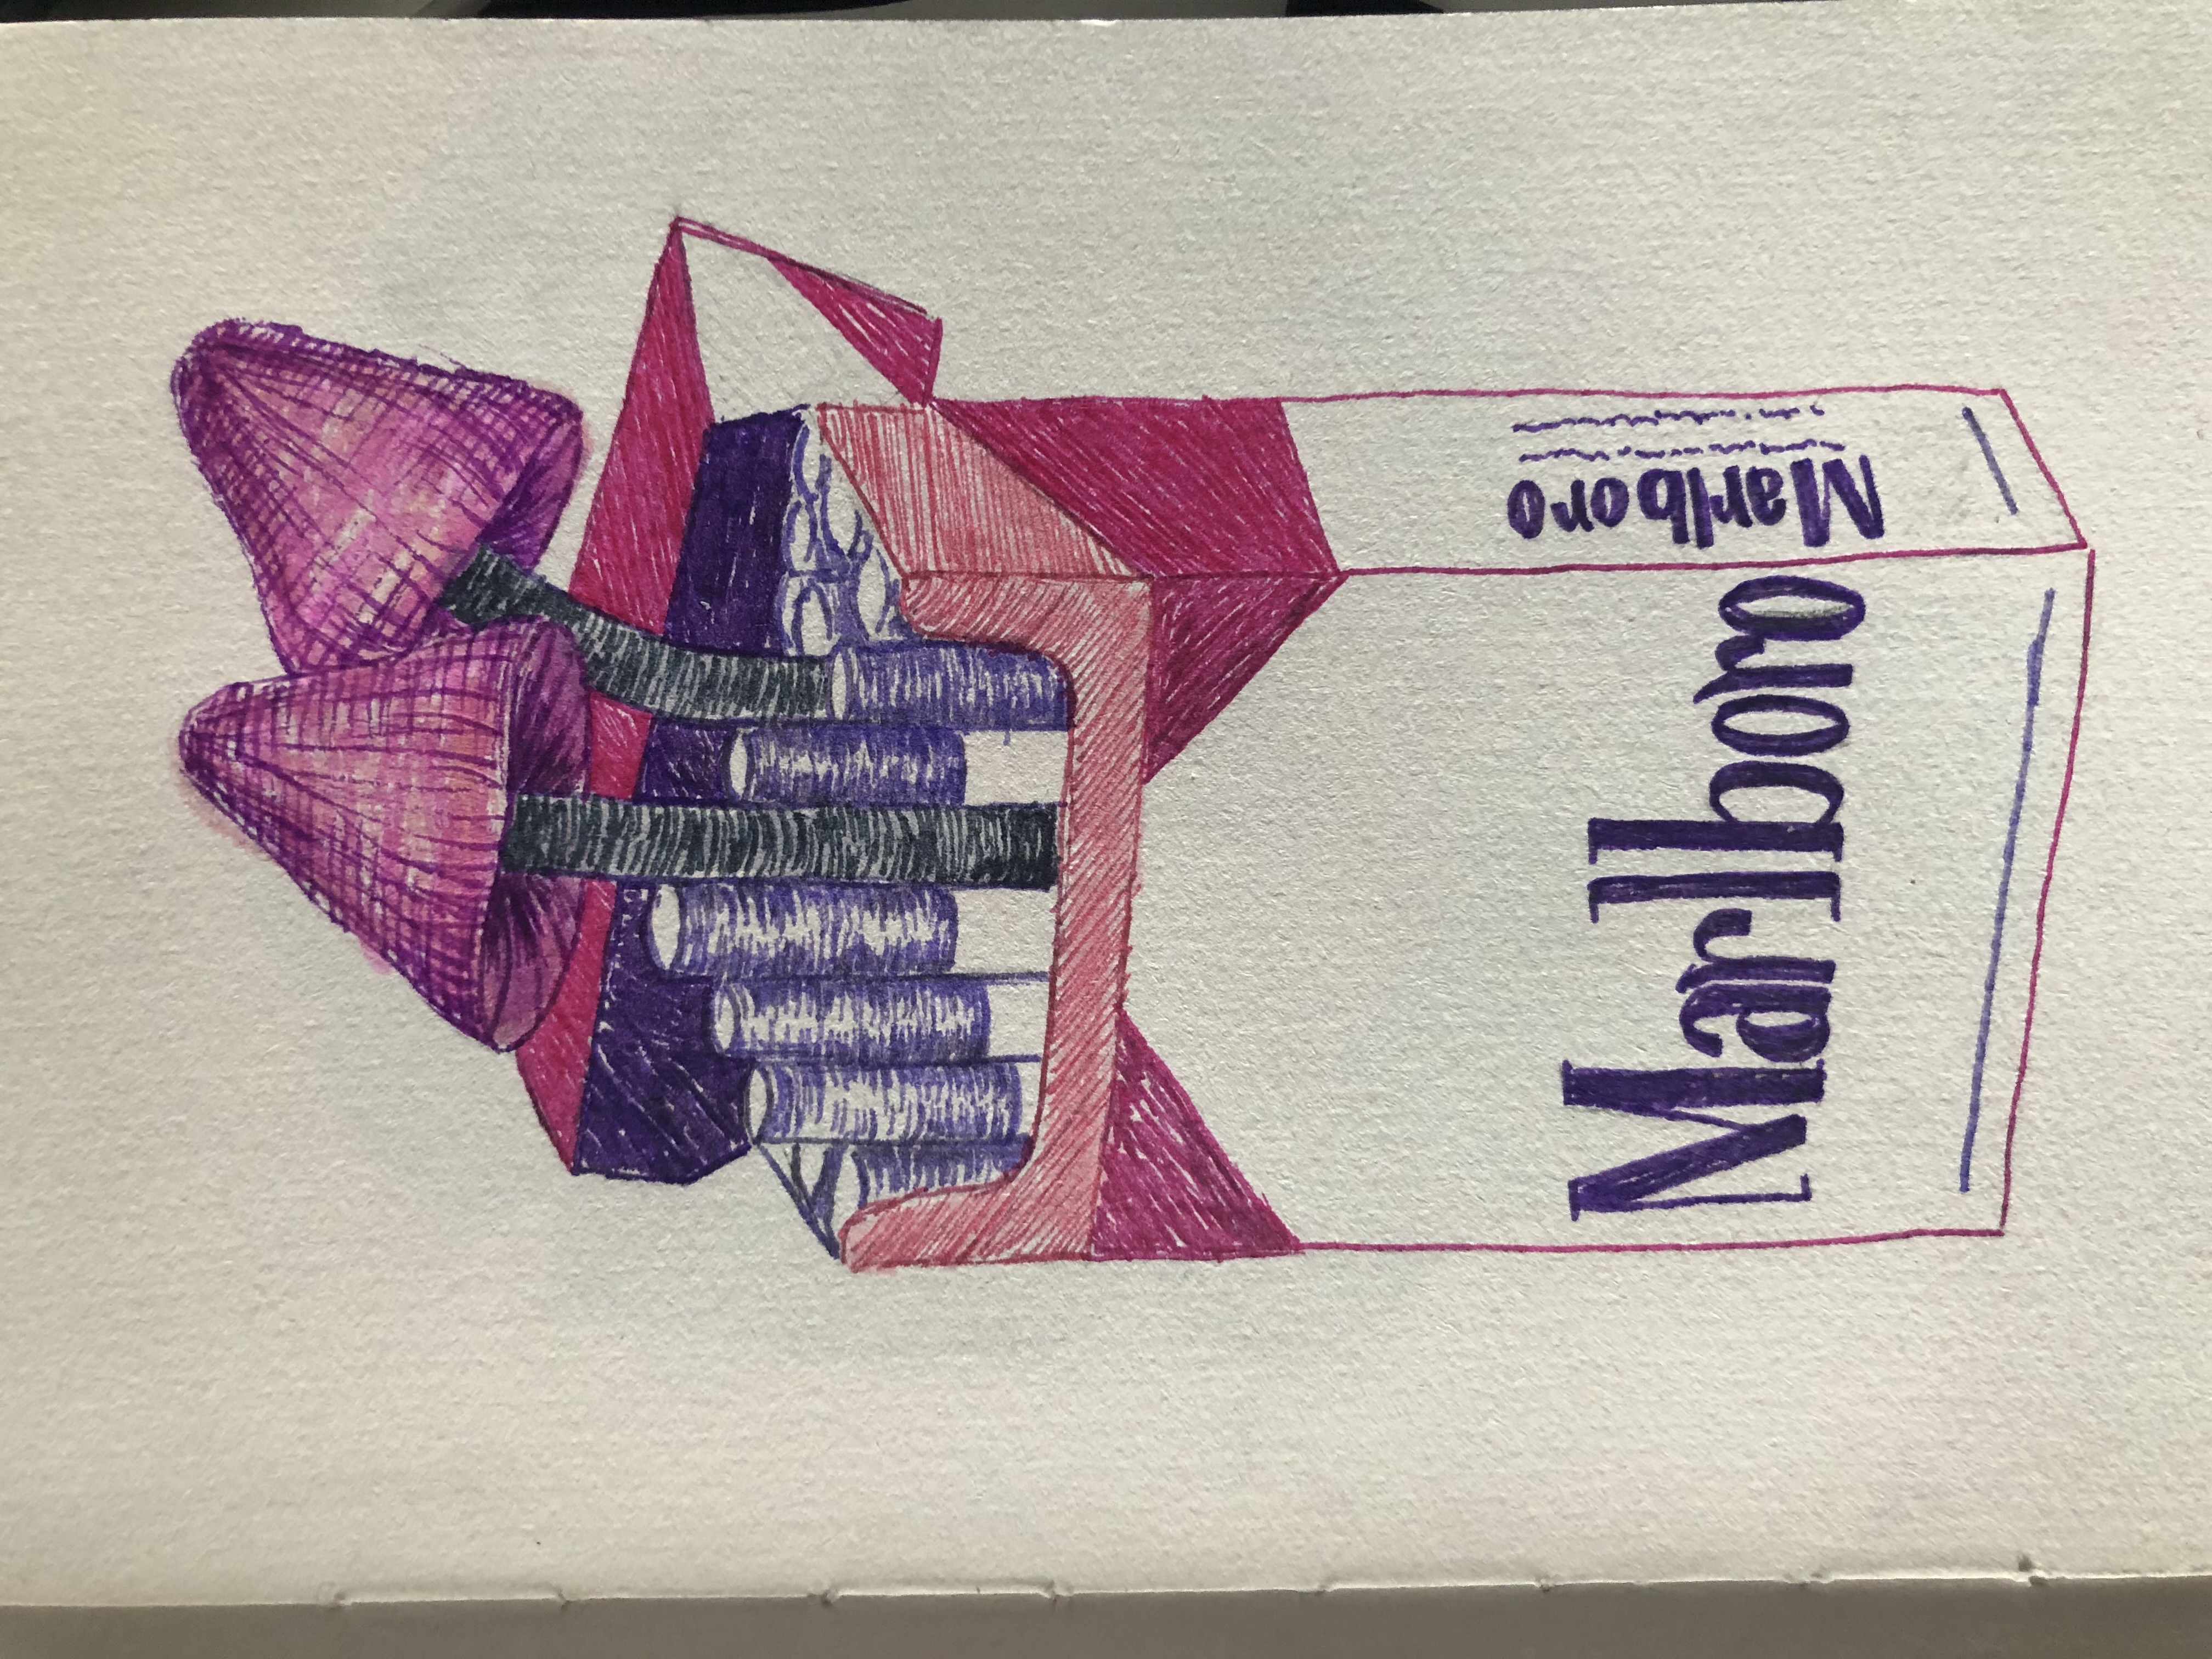 Marlboro
Marlboro